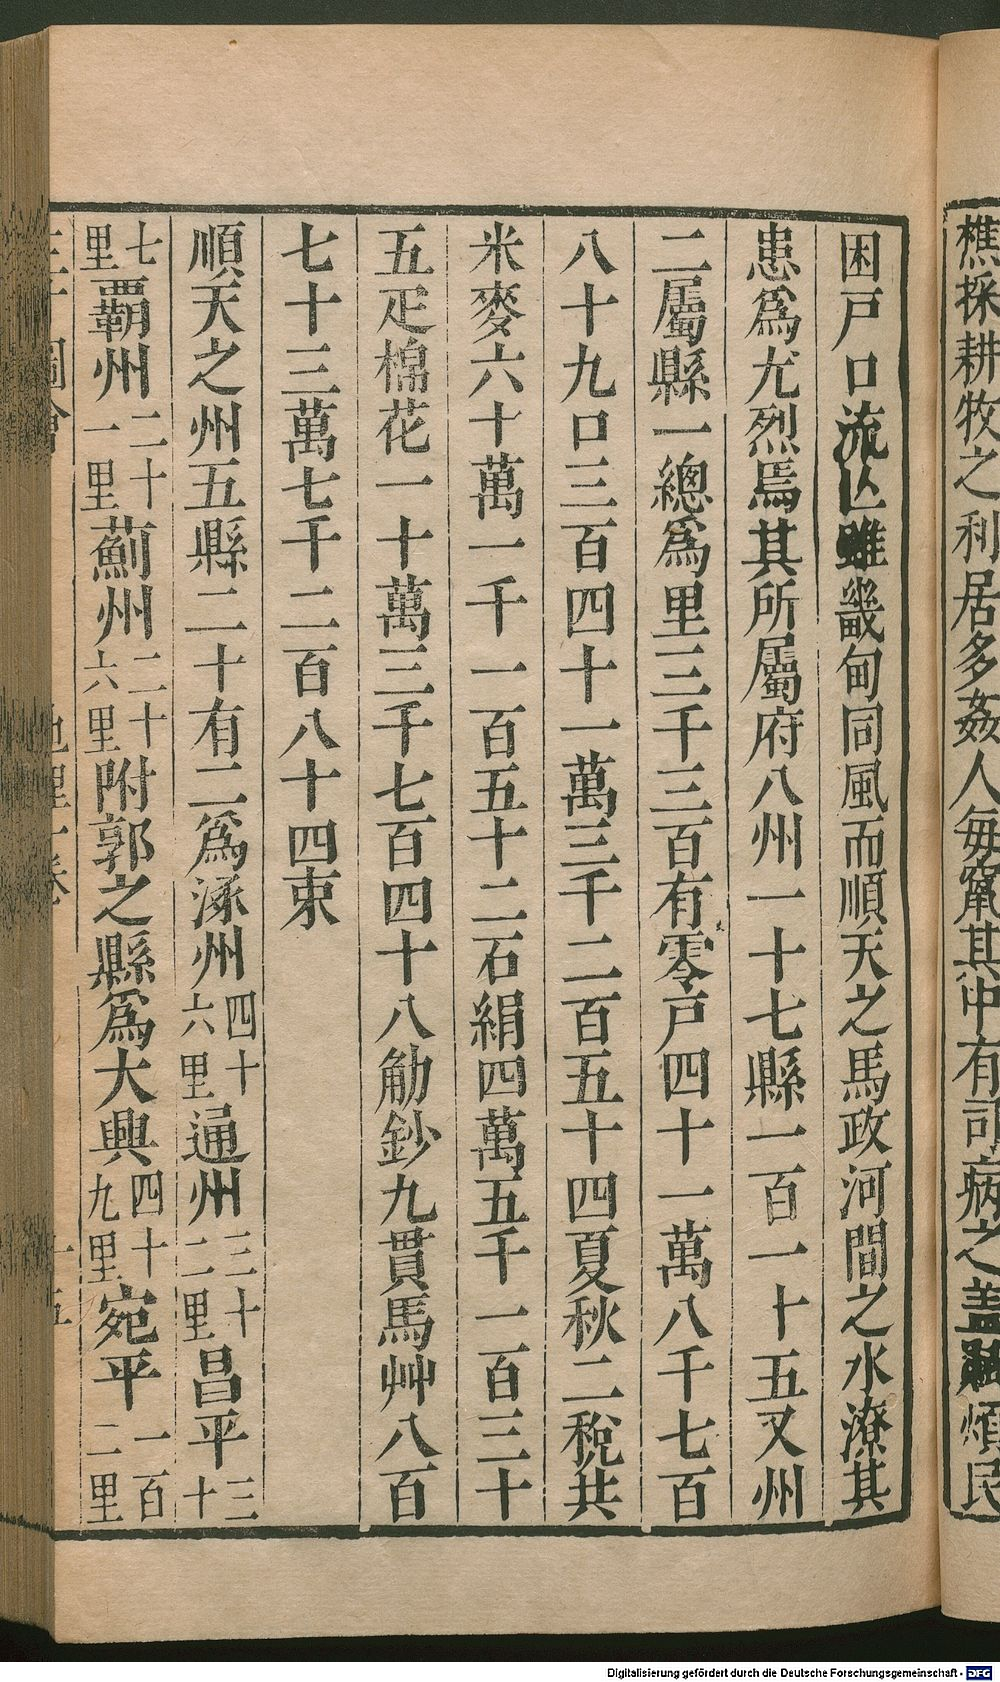 樵採耕牧之利居多姦人每竄其中有司病之蓋煩民
困戶口流亾雖畿甸同風而順天之馬政河間之水潦其
患爲尤烈焉其所屬府八州一十七縣一百一十五又州
二屬縣一總爲里三千三百有零戶四十一萬八千七百
八十九口三百四十一萬三千二百五十四夏秋二稅共
米麥六十萬一千一百五十二石絹四萬五千一百三十
五疋棉花一十萬三千七百四十八觔鈔九貫馬艸八百
七十三萬七千二百八十四束
順天之州五縣二十有二爲涿州四十六里通州三十二里昌平三十
七里覇州二十一里薊州二十六里附郭之縣爲大興四十九里宛平一百二里
Digitalisierung gefördert durch die Deutsche Forschungsgemeinschaft - DFG